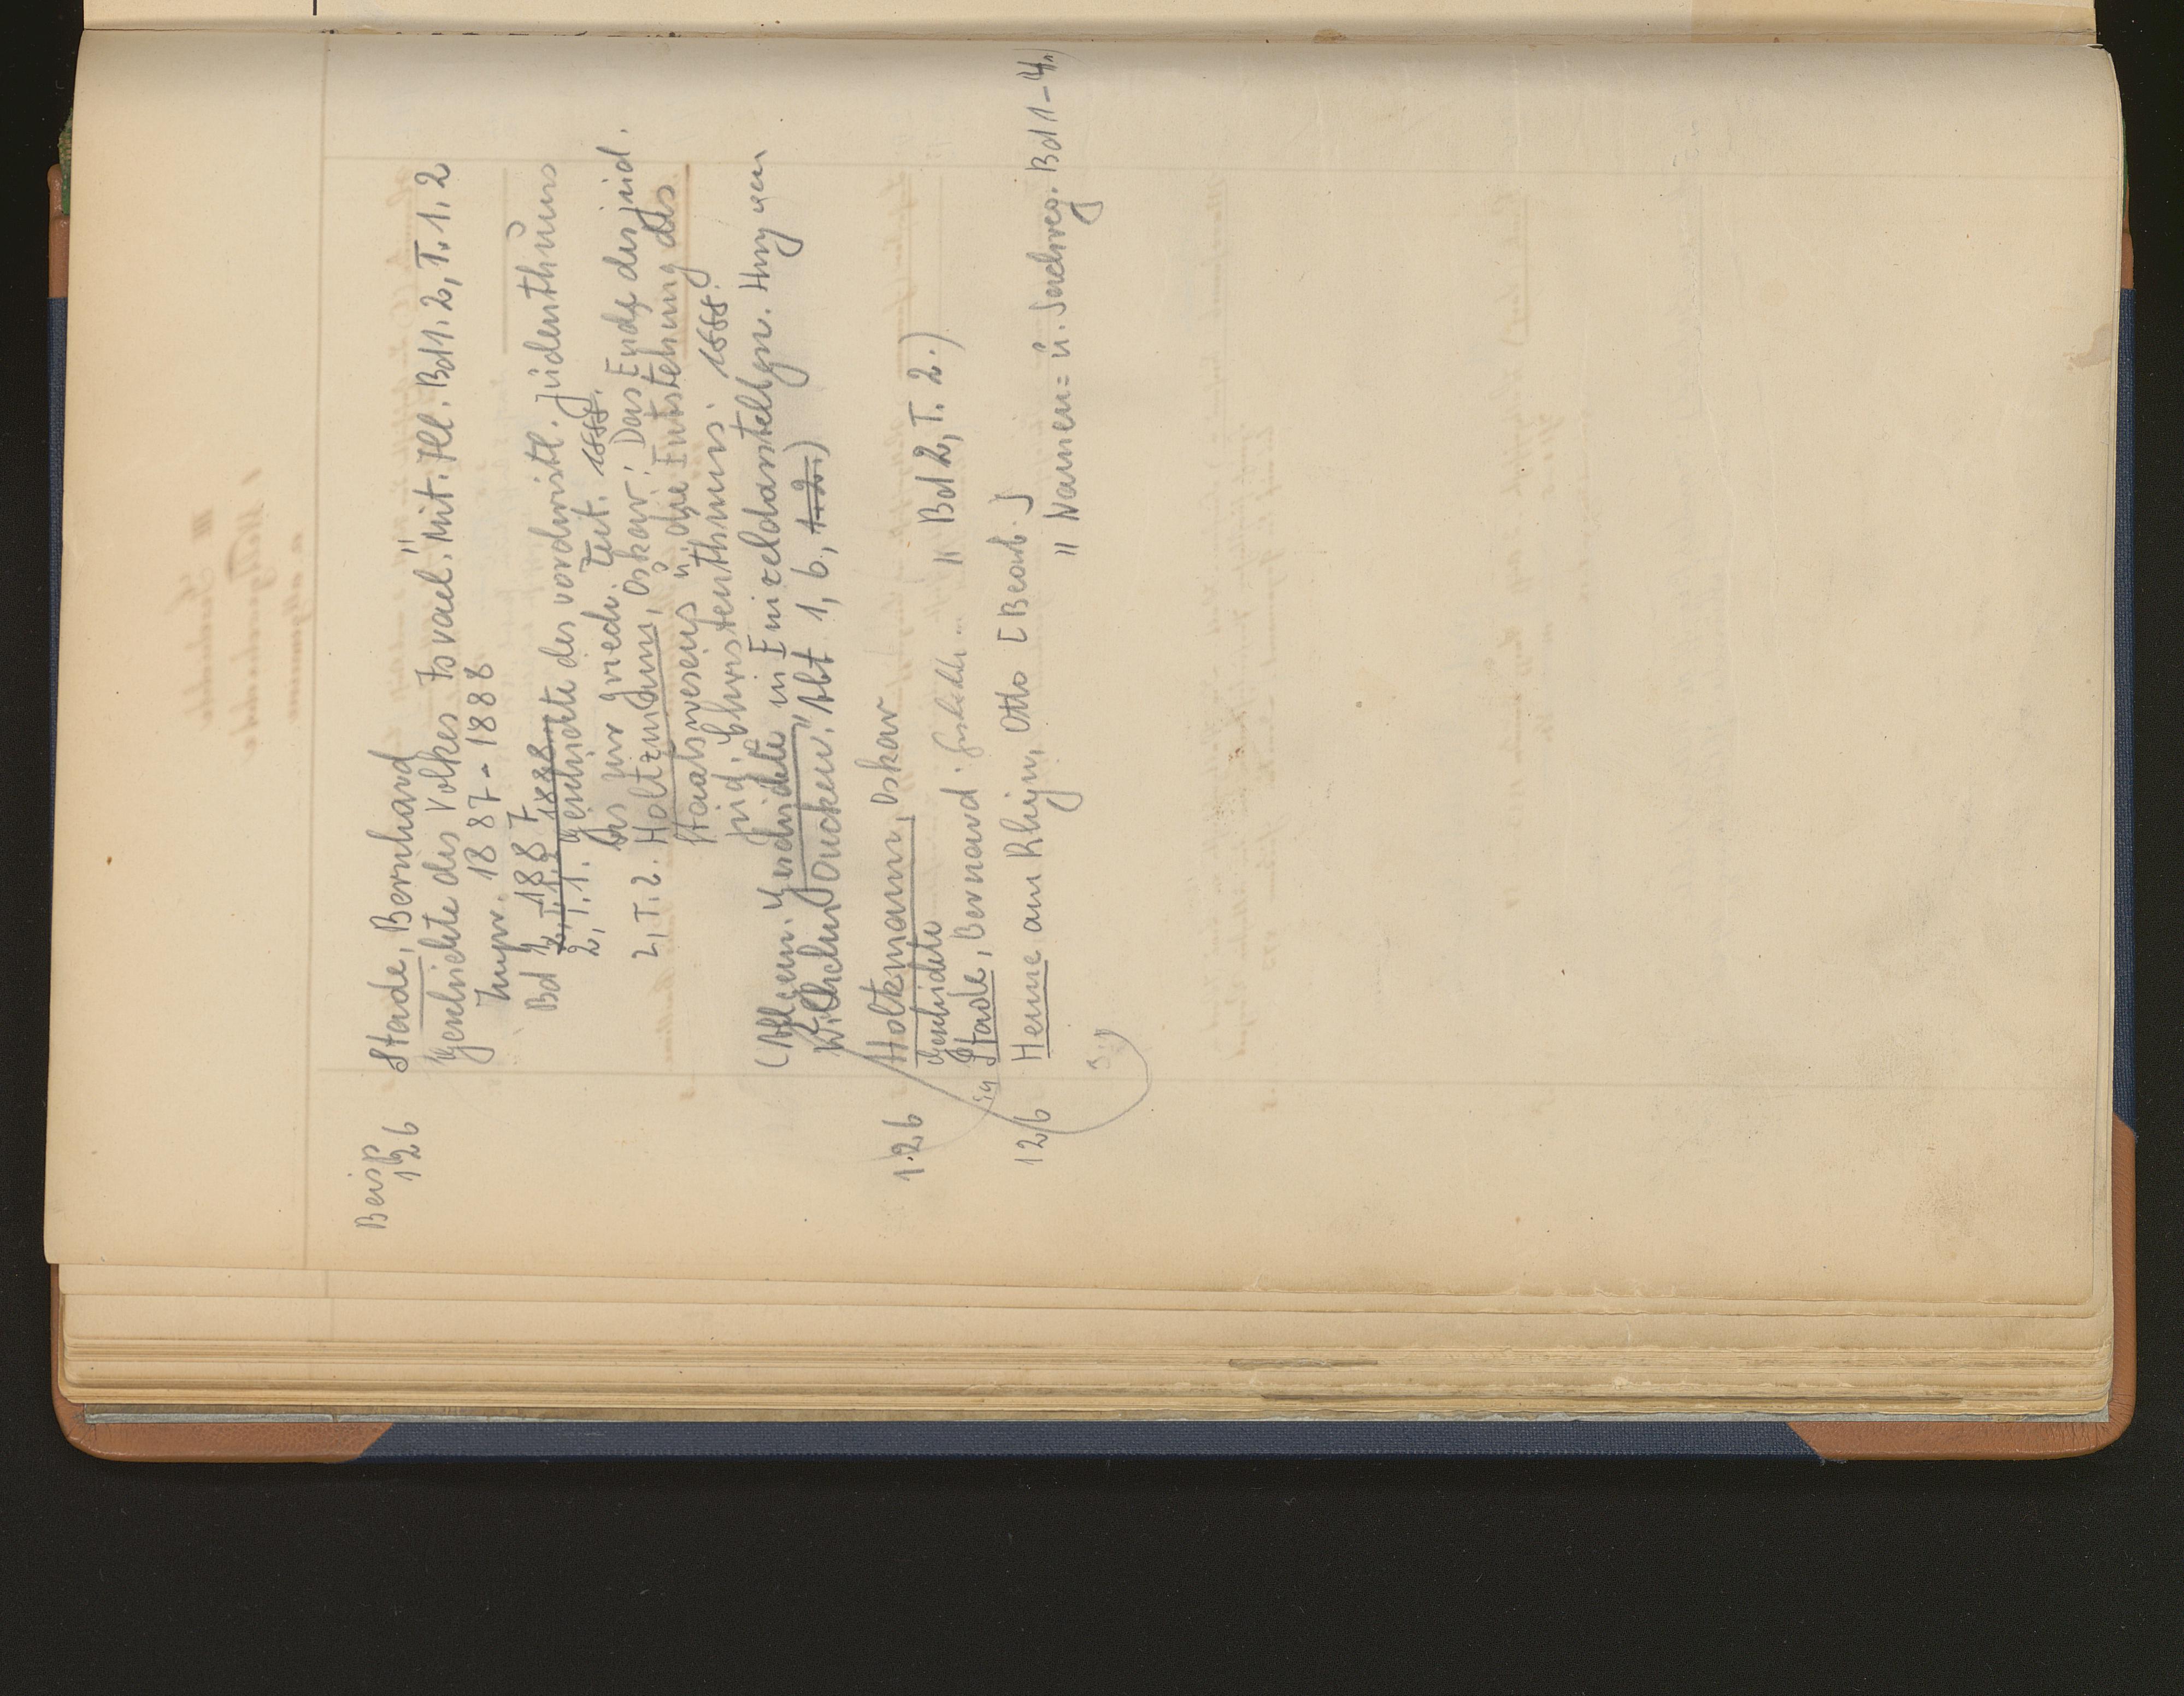 Beisp
126 Stade, Bernhard
Geschichte des Volkes Israel. Mit. Ill. Bd 1. 2, T. 1. 2
1887-1888
Bd 1. 1887
2, T. 1. 1888
2, T. 1. Geschichte des vorchristl. Judenthums
bis zur griech. Zeit. 1888.
2, T. 2. Holtzmann, Oskar: Das Ende des jüd.
Staatswesens u. die Entstehung des
Christenthums. 1888.
(Allgem. Geschichte in Einzeldarstellgn. Hrsg von
Wilhelm Oncken. Abt 1, 6, 1-2.)
1.26 Holtzmann, Oskar
Geschichte
in Stade, Bernard: Geschichte... " Bd 2, T. 2.)
126 Henne am Rhyn, Otto [Bearb.]
" Namen= u. Sachreg. Bd 1-4.)